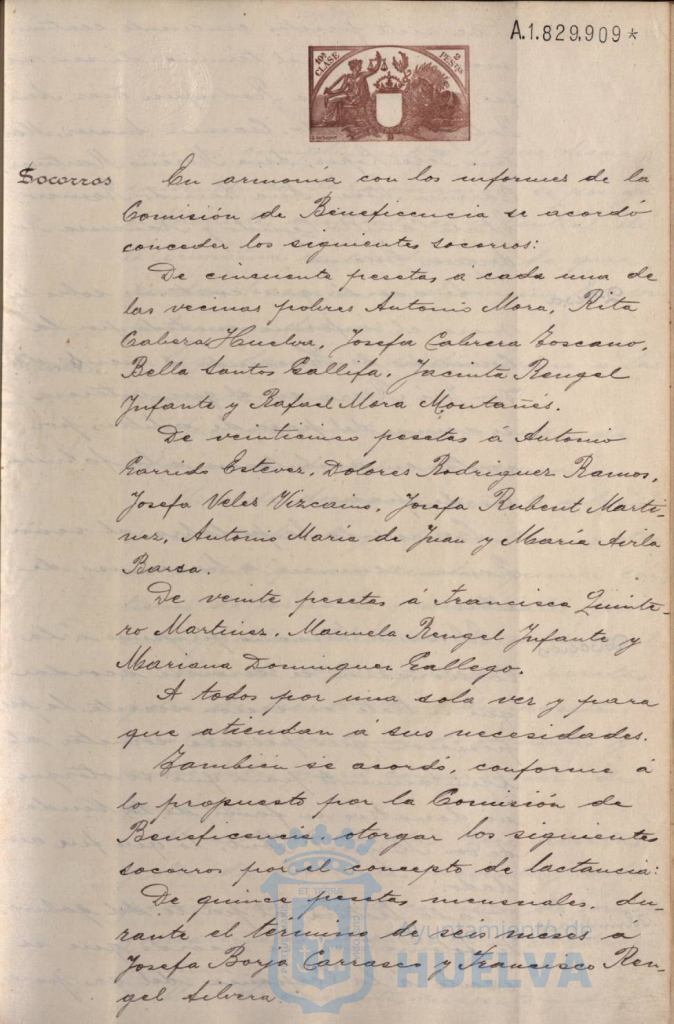 A.1.829.909*
10ª CLASE 2 PESTAS
Socorros
En armonía con los informes de la
Comisión de Beneficencia se acordó
conceder los siguientes socorros:
De cincuenta pesetas á cada una de
las vecinas pobres Antonio Mora, Rita
Cabera Huelva, Josefa Cabrera Toscano,
Bella Santos Gallifa, Jacinta Rengel
Infante y Rafael Mora Montañés.
De veinticinco pesetas á Antonio
Garrido Estevez, Dolores Rodriguez Ramos,
Josefa Velez Vizcaino, Josefa Rubent Marti-
nez, Antonio Maria de Juan y María Avila
Barsa.
De veinte pesetas á Francisca Quinte-
ro Martinez, Manuela Rengel Infante y
Mariana Dominguez Gallego.
A todos por una sola vez y para
que atiendan á sus necesidades.
También se acordó, conforme á
lo propuesto por la Comisión de
Beneficencia, otorgar los siguientes
socorros por el concepto de lactancia:
De quince pesetas mensuales, du-
rante el término de seis meses á
Josefa Borja Carrasco y Francisco Ren-
gel Silvera.
Ayuntamiento de
HUELVA